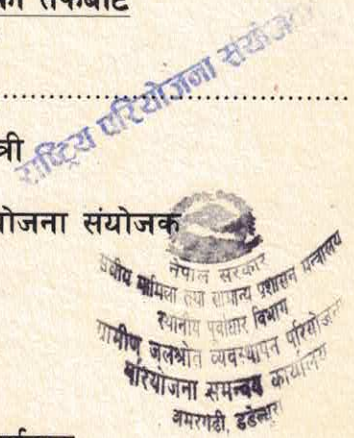 को तर्फबाट
राष्ट्रिय परियोजना संयोजक
त्री
योजना संयोजक
नेपाल सरकार
संघीय मामिला तथा सामान्य प्रशासन मन्त्रालय
स्थानीय पूर्वाधार विभाग
ग्रामीण जलश्रोत व्यवस्थापन परियोजना
परियोजना समन्वय कार्यालय
अमरगढी, डडेल्धुरा